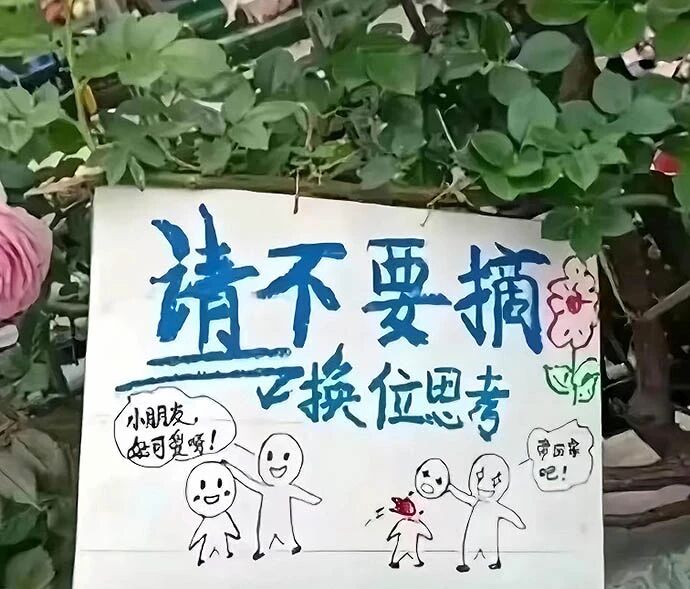 请不要摘
换位思考
小朋友,
好可爱呀!
带回家
吧!